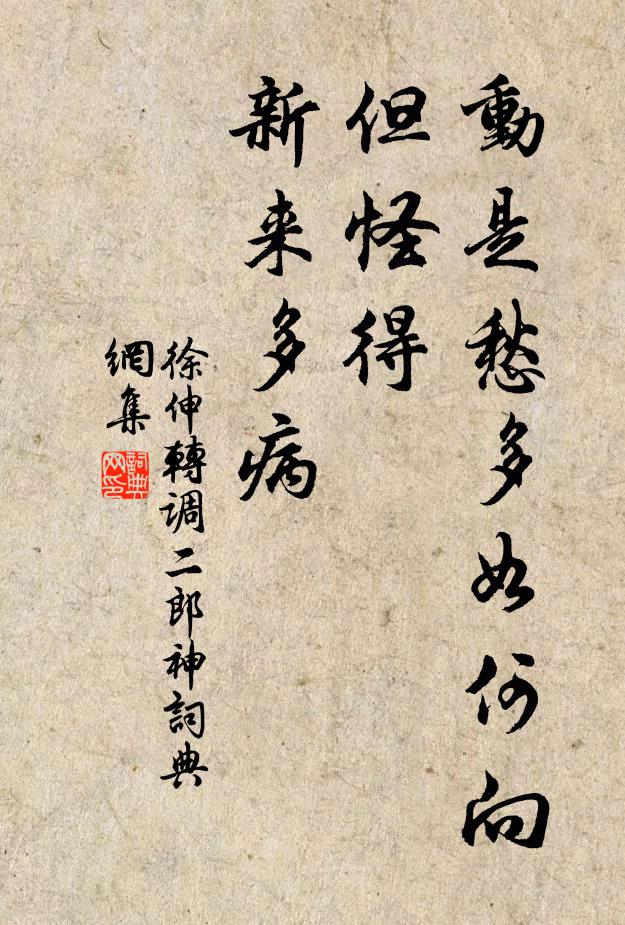 動是愁多如何向
但怪得
新来多病
徐伸轉调二郎神詞典
網集
詞典网印